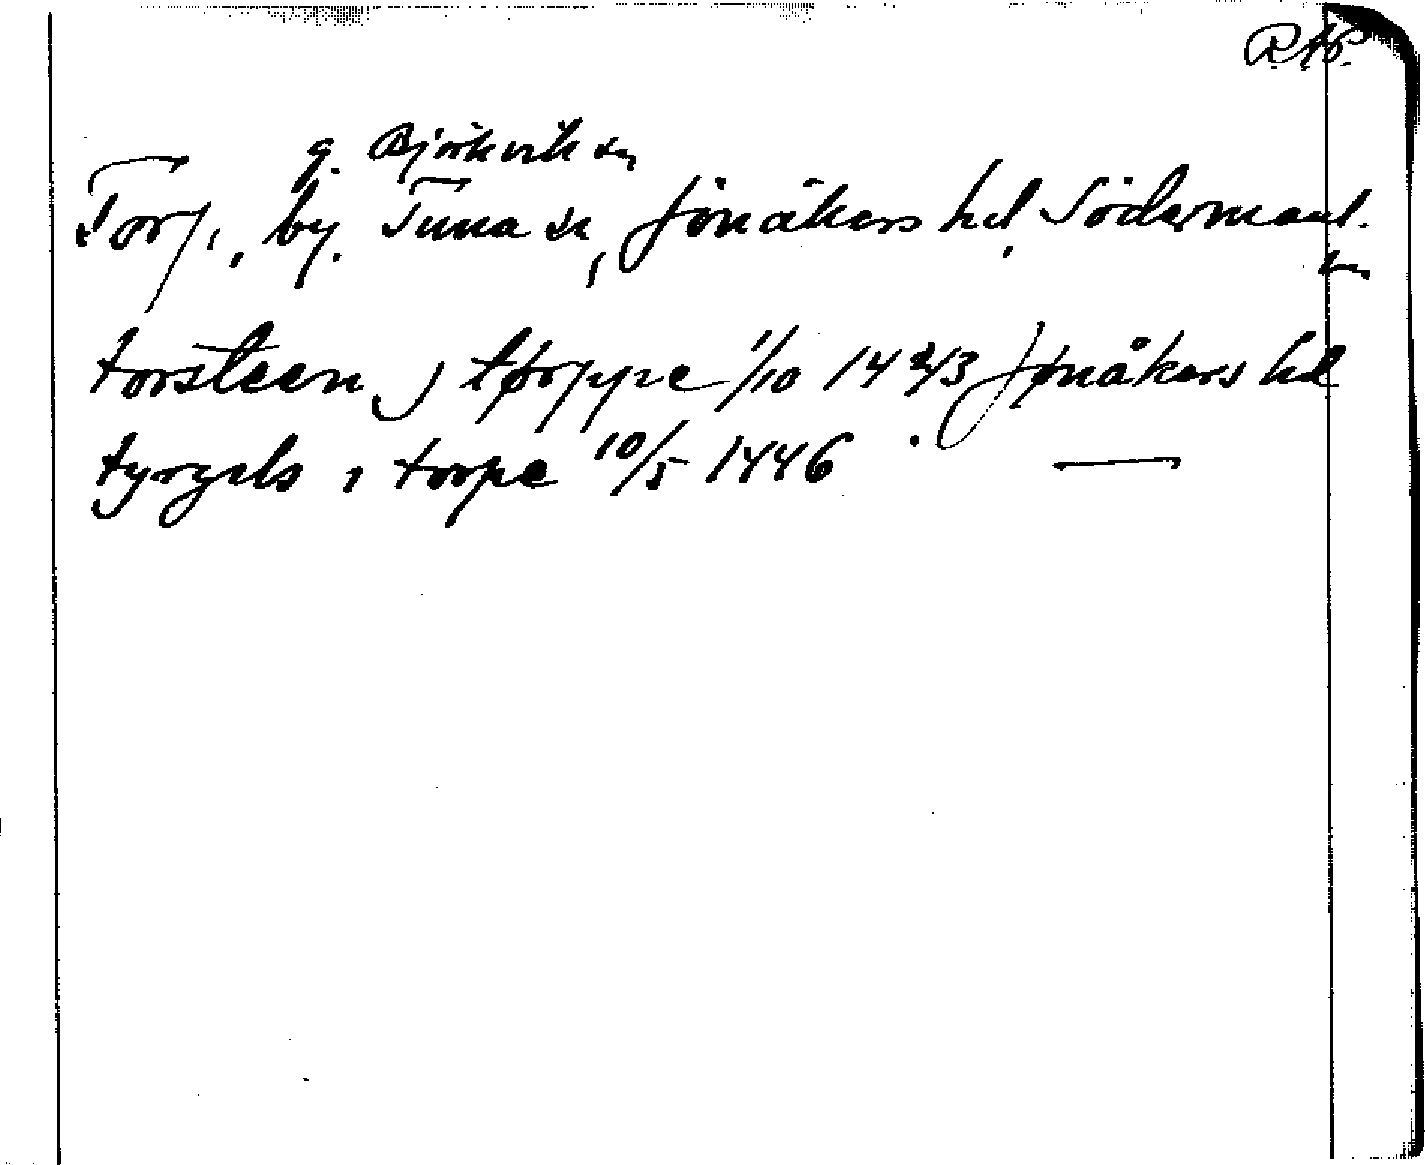 RAP.
g. Björkvik sn
Torp, by. Tuna sn, Jönåkers hd, Södermanl.
torsteen j tørppe 1/10 1443 Jønåkers hd
tyrgels i torpe 10/5 1446 . —